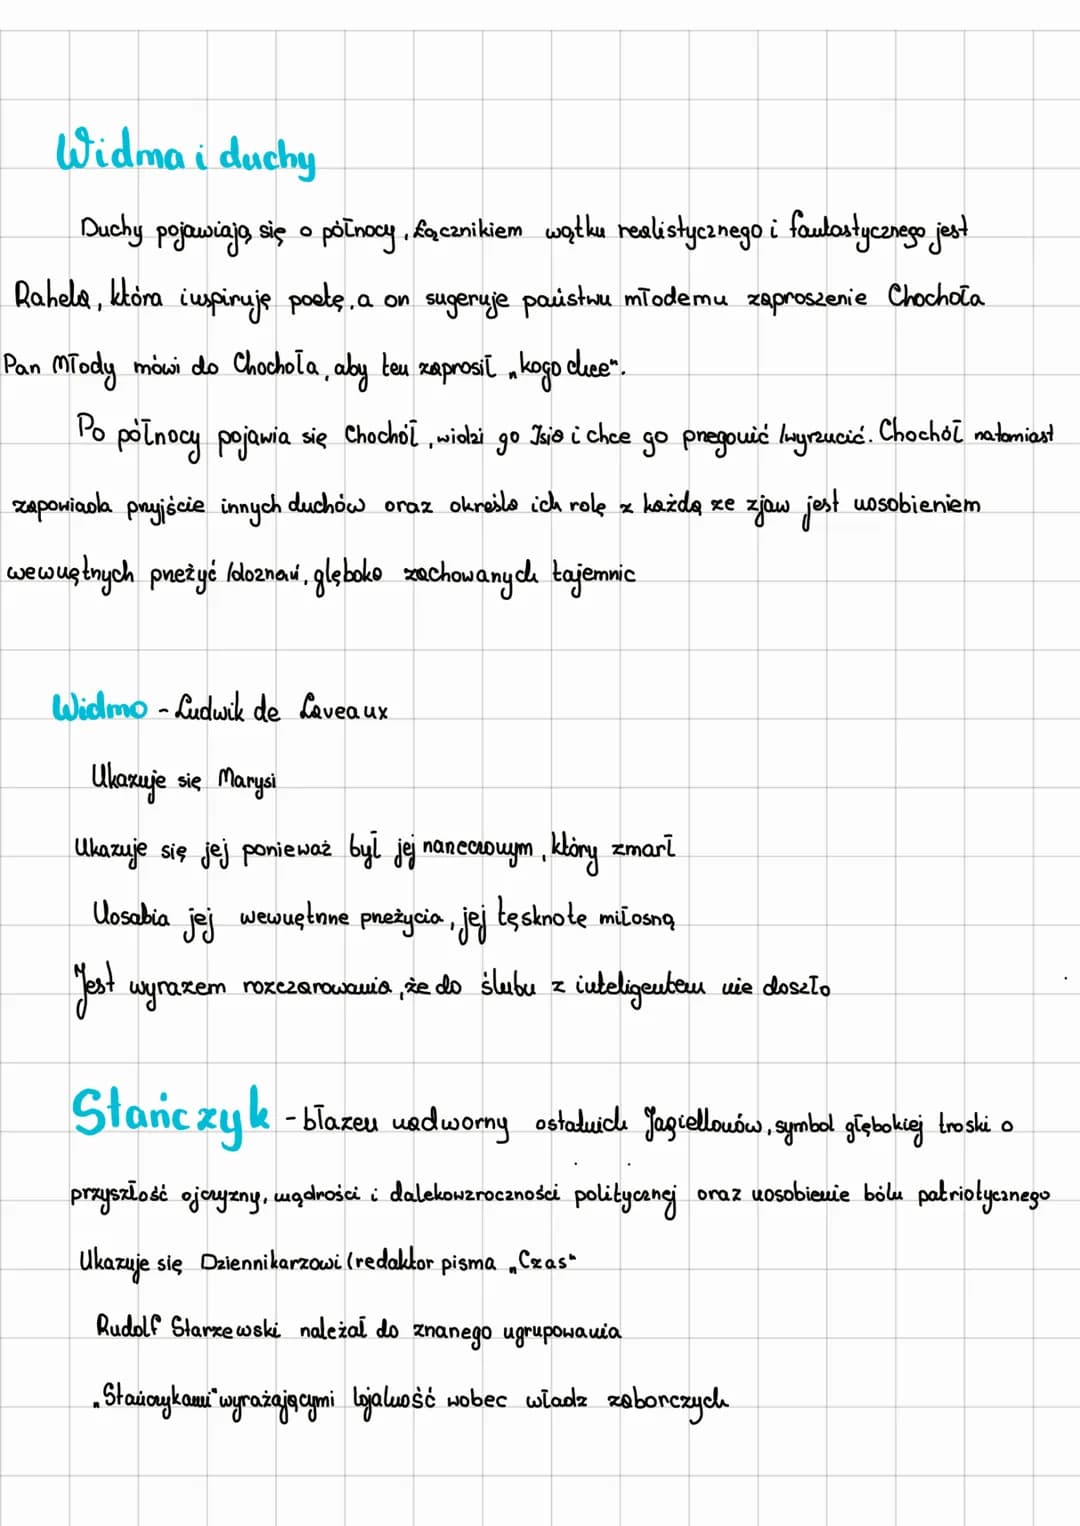 Widma i duchy
Duchy pojawiają się o północy, łącznikiem wątku realistycznego i fantastycznego jest
Rahela, która inspiruję poetę, a on sugeruje państwu młodemu zaproszenie Chochoła
Pan Młody mówi do Chochoła, aby ten zaprosił „kogo chce".
Po północy pojawia się Chochół, widzi go Isia i chce go przegonić /wyrzucić. Chochół natomiast
zapowiada przyjście innych duchów oraz określa ich rolę z każdą ze zjaw jest uosobieniem
wewnętrznych przeżyć /doznań, głęboko zachowanych tajemnic
Widmo - Ludwik de Laveaux
Ukazuje się Marysi
Ukazuje się jej ponieważ był jej narzeczonym, który zmarł
Uosabia jej wewnętrzne przeżycia, jej tęsknotę miłosną
Jest wyrazem rozczarowania, że do ślubu z inteligentem nie doszło
Stańczyk - błazen nadworny ostatnich Jagiellonów, symbol głębokiej troski o
przyszłość ojczyzny, mądrości i dalekowzroczności politycznej oraz uosobienie bólu patriotycznego
Ukazuje się Dziennikarzowi (redaktor pisma „Czas"
Rudolf Starzewski należał do znanego ugrupowania
„Stańczykami" wyrażającymi lojalność wobec władz zaborczych